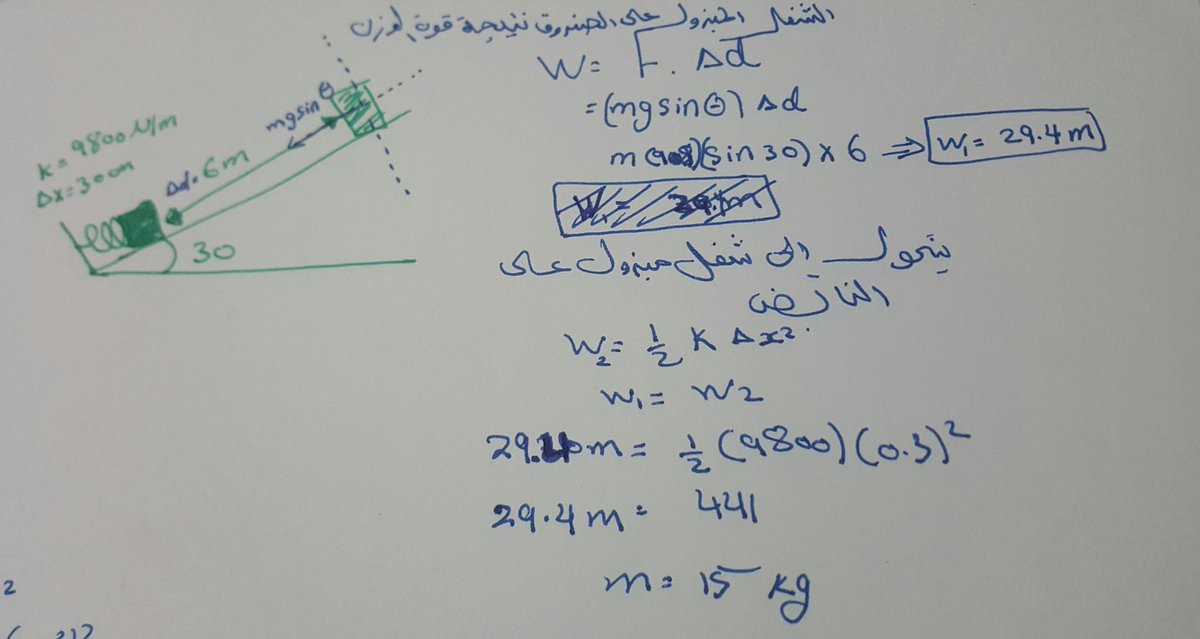 الشغل المبذول على الصندوق نتيجة قوة الوزن
W = F . Δd
= (mg sin θ) Δd
m (9.8) (sin 30) × 6 ⇒ W₁ = 29.4 m
يتحول إلى شغل مبذول على
النابض
W₂ = ½ K Δx²
W₁ = W₂
29.4 m = ½ (9800) (0.3)²
29.4 m = 441
m = 15 kg
K = 9800 N/m
Δx = 30 cm
Δd = 6 m
mg sin θ
30
2